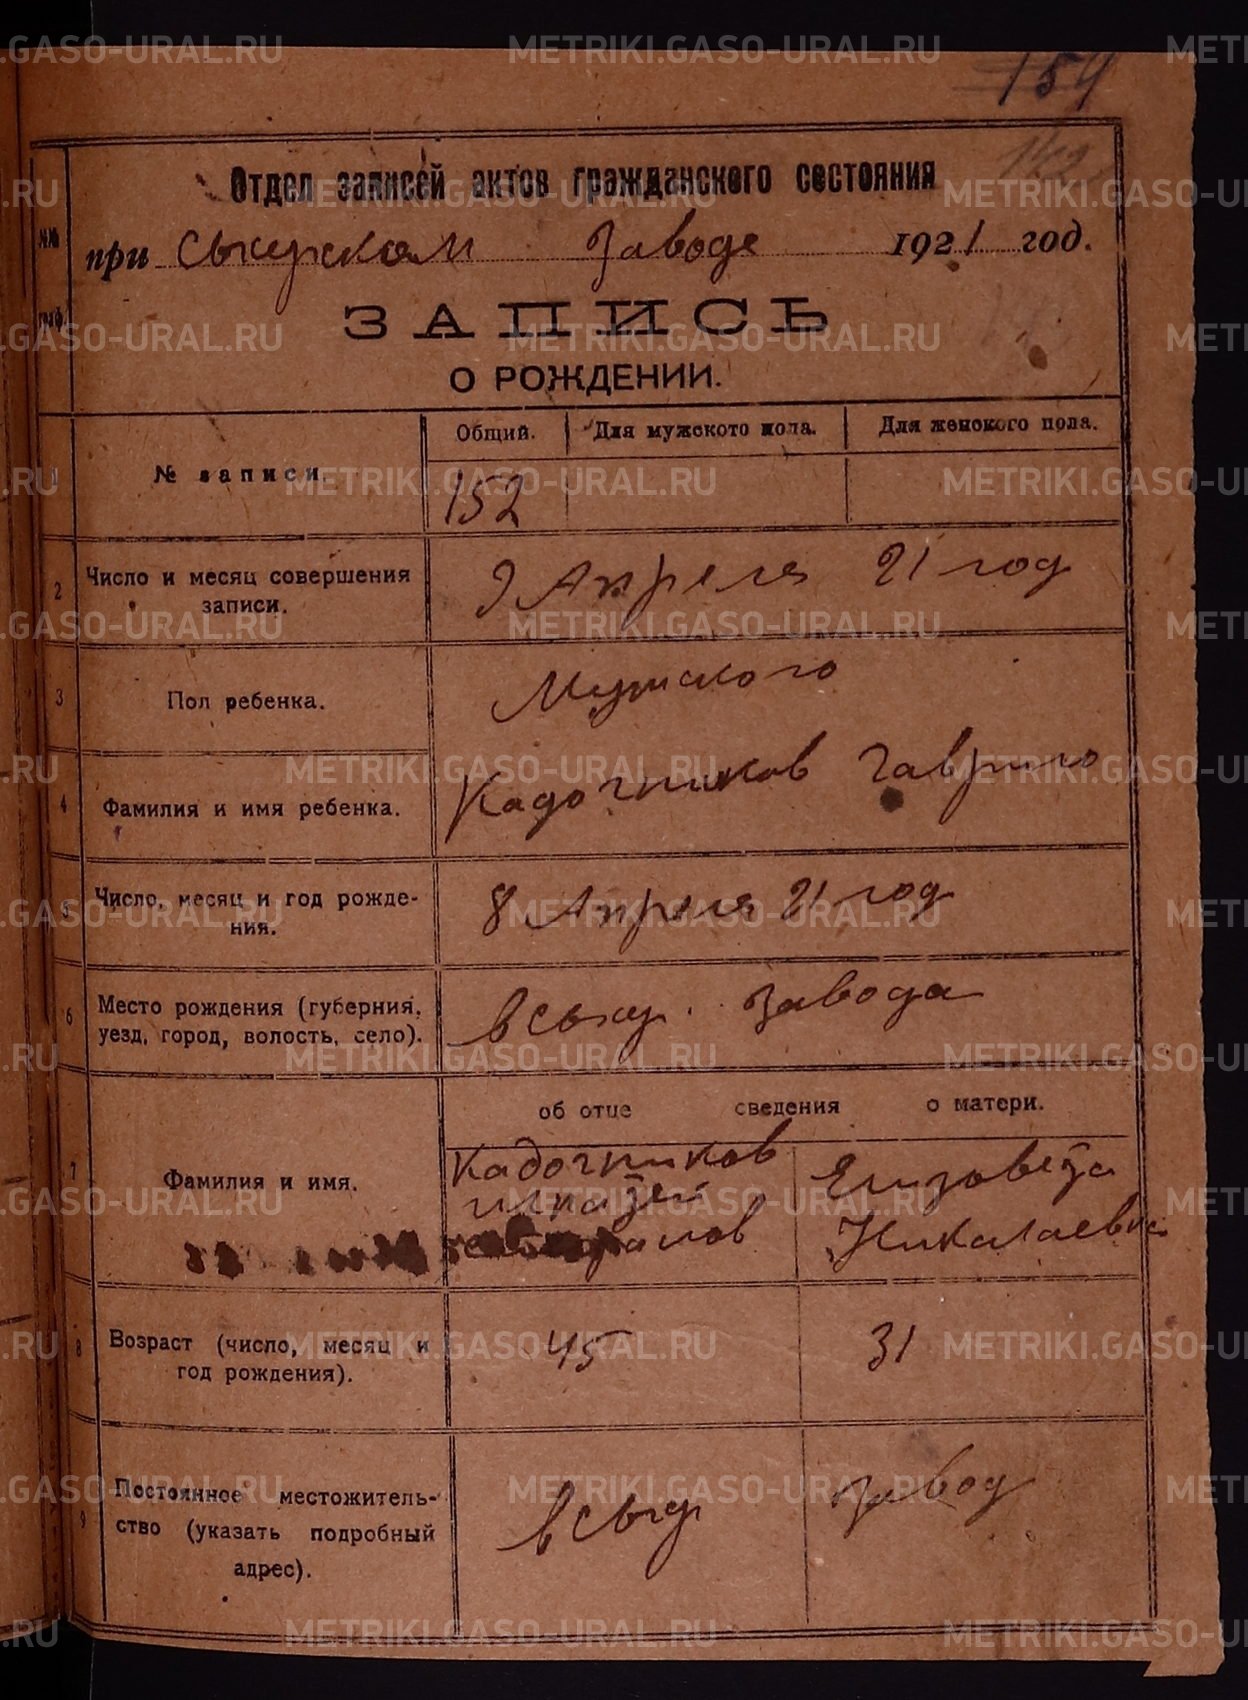 154
142
Отдел записей актов гражданского состояния
№№ граф.
при Сысерском Заводе 1921 год.
ЗАПИСЬ
О РОЖДЕНИИ.
Общий. Для мужского пола. Для женского пола.
1 № записи. 152
2 Число и месяц совершения записи. 9 Апреля 21 год
3 Пол ребенка. Мужского
4 Фамилия и имя ребенка. Кадочников Гаврило
5 Число, месяц и год рожде-
ния. 8 Апреля 21 год
6 Место рождения (губерния,
уезд, город, волость, село). в Сысер. Завода
об отце сведения о матери.
7 Фамилия и имя. Кадочников Елизавета
Николаевна
8 Возраст (число, месяц и
год рождения). 45 31
9 Постоянное местожитель-
ство (указать подробный
адрес). в Сысер Завод
METRIKI.GASO-URAL.RU